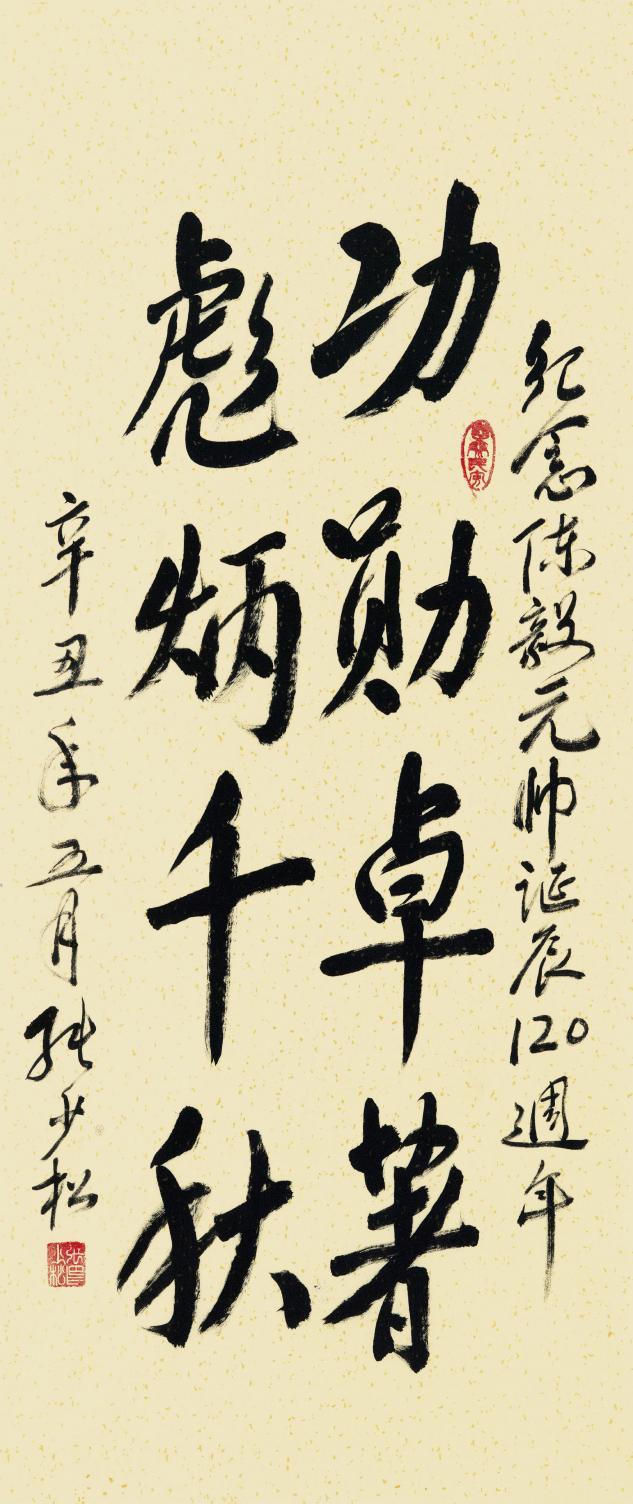 纪念陈毅元帅诞辰120週年
功勋卓著
彪炳千秋
辛丑年五月张少松